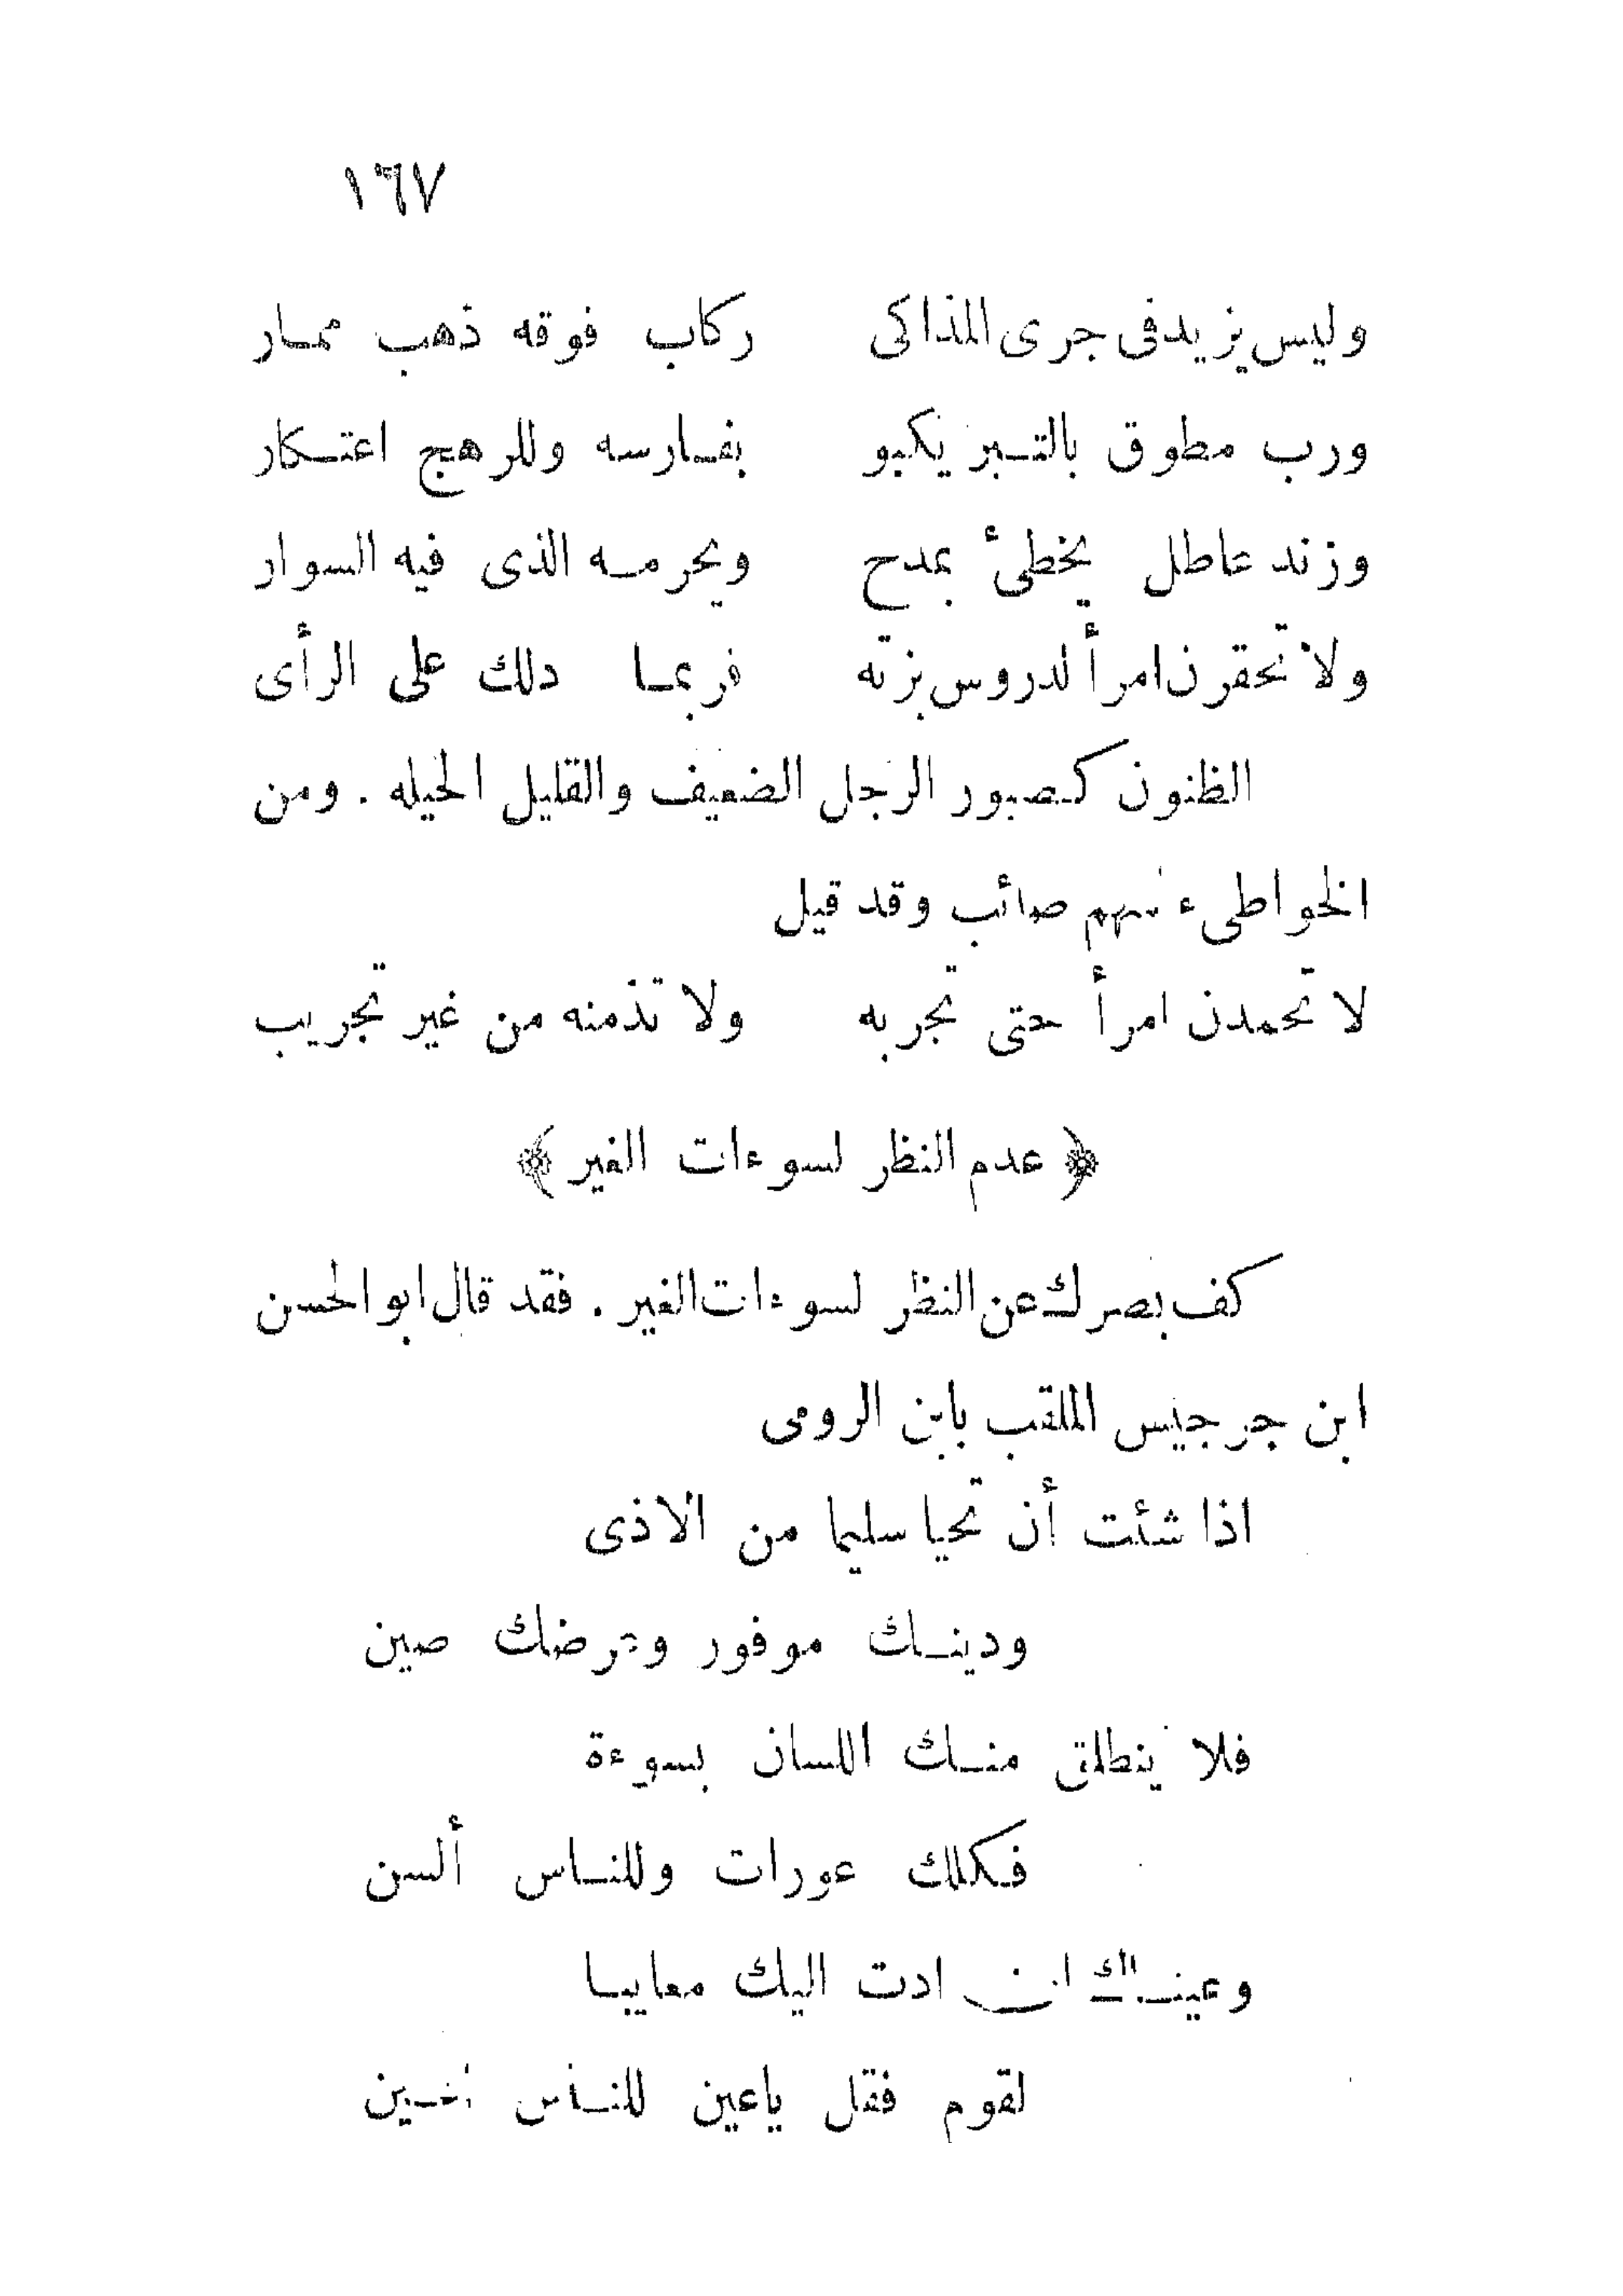 ١٦٧
وليس يزيد فى جرى المذاكى ركاب فوقه ذهب ممار
ورب مطوق بالتبر يكبو بفارسه وللرهج اعتكار
وزند عاطل يخطئ بمدح ويحرمه الذى فيه السوار
ولا تحقرن امرأ لدروس بزته فربما دلك على الرأى
الظنون كصبور الرجل الضعيف والقليل الحيله . ومن
الخواطىء سهم صائب وقد قيل
لا تحمدن امرأ حتى تجربه ولا تذمنه من غير تجريب
﴿ عدم النظر لسوءات الغير ﴾
كف بصرك عن النظر لسوءات الغير . فقد قال ابو الحسن
ابن جرجيس الملقب بابن الرومى
اذا شئت أن تحيا سليما من الاذى
ودينك موفور وعرضك صين
فلا ينطلق منك اللسان بسوءة
فكلك عورات وللناس ألسن
وعيناك ان ادت اليك معايبا
لقوم فقل ياعين للناس اعين